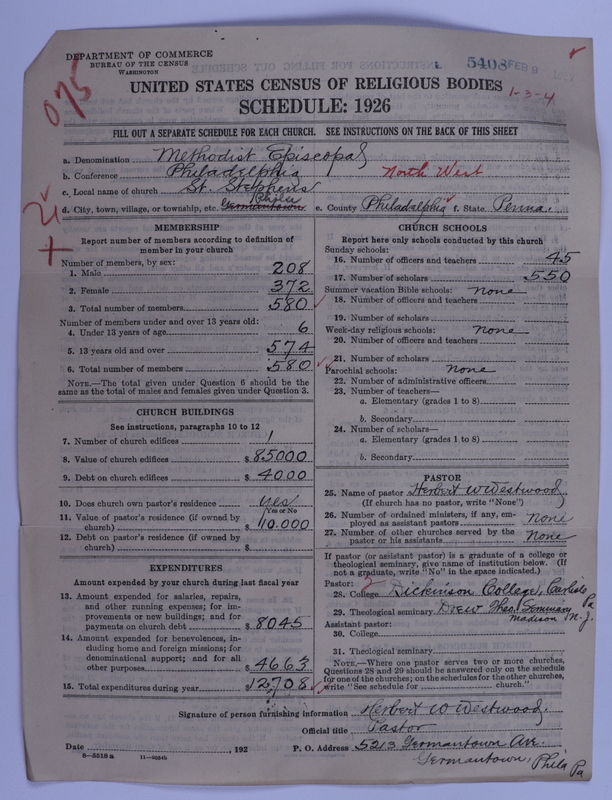 DEPARTMENT OF COMMERCE
BUREAU OF THE CENSUS
WASHINGTON
5408 FEB 9
075
UNITED STATES CENSUS OF RELIGIOUS BODIES
1-3-4
SCHEDULE: 1926
FILL OUT A SEPARATE SCHEDULE FOR EACH CHURCH. SEE INSTRUCTIONS ON THE BACK OF THIS SHEET
a. Denomination Methodist Episcopal
b. Conference Philadelphia North West
c. Local name of church St. Stephens
d. City, town, village, or township, etc. Germantown Phila e. County Philadelphia f. State Penna.
MEMBERSHIP
Report number of members according to definition of
member in your church
Number of members, by sex:
1. Male 208
2. Female 372
3. Total number of members 580
Number of members under and over 13 years old:
4. Under 13 years of age 6
5. 13 years old and over 574
6. Total number of members 580
NOTE.—The total given under Question 6 should be the
same as the total of males and females given under Question 3.
CHURCH BUILDINGS
See instructions, paragraphs 10 to 12
7. Number of church edifices 1
8. Value of church edifices $ 85000
9. Debt on church edifices $ 4000
10. Does church own pastor's residence yes
Yes or No
11. Value of pastor's residence (if owned by
church) $ 10.000
12. Debt on pastor's residence (if owned by
church) $
EXPENDITURES
Amount expended by your church during last fiscal year
13. Amount expended for salaries, repairs,
and other running expenses; for im-
provements or new buildings; and for
payments on church debt $ 8045
14. Amount expended for benevolences, in-
cluding home and foreign missions; for
denominational support; and for all
other purposes $ 4663
15. Total expenditures during year $ 12,708
CHURCH SCHOOLS
Report here only schools conducted by this church
Sunday schools:
16. Number of officers and teachers 45
17. Number of scholars 550
Summer vacation Bible schools: none
18. Number of officers and teachers
19. Number of scholars
Week-day religious schools: none
20. Number of officers and teachers
21. Number of scholars
Parochial schools: none
22. Number of administrative officers
23. Number of teachers—
a. Elementary (grades 1 to 8)
b. Secondary
24. Number of scholars—
a. Elementary (grades 1 to 8)
b. Secondary
PASTOR
25. Name of pastor Herbert W Westwood
(If church has no pastor, write "None")
26. Number of ordained ministers, if any, em-
ployed as assistant pastors none
27. Number of other churches served by the
pastor or his assistants none
If pastor (or assistant pastor) is a graduate of a college or
theological seminary, give name of institution below. (If
not a graduate, write "No" in the space indicated.)
Pastor: 2
28. College Dickinson College, Carlisle Pa
29. Theological seminary Drew Theo. Seminary
Madison N.J.
Assistant pastor:
30. College
31. Theological seminary
NOTE.—Where one pastor serves two or more churches,
Questions 28 and 29 should be answered only on the schedule
for one of the churches; on the schedules for the other churches,
write "See schedule for church."
Signature of person furnishing information Herbert W Westwood
Official title Pastor
Date , 192 P. O. Address 5213 Germantown Ave.
8—5518 a
Germantown, Phila Pa